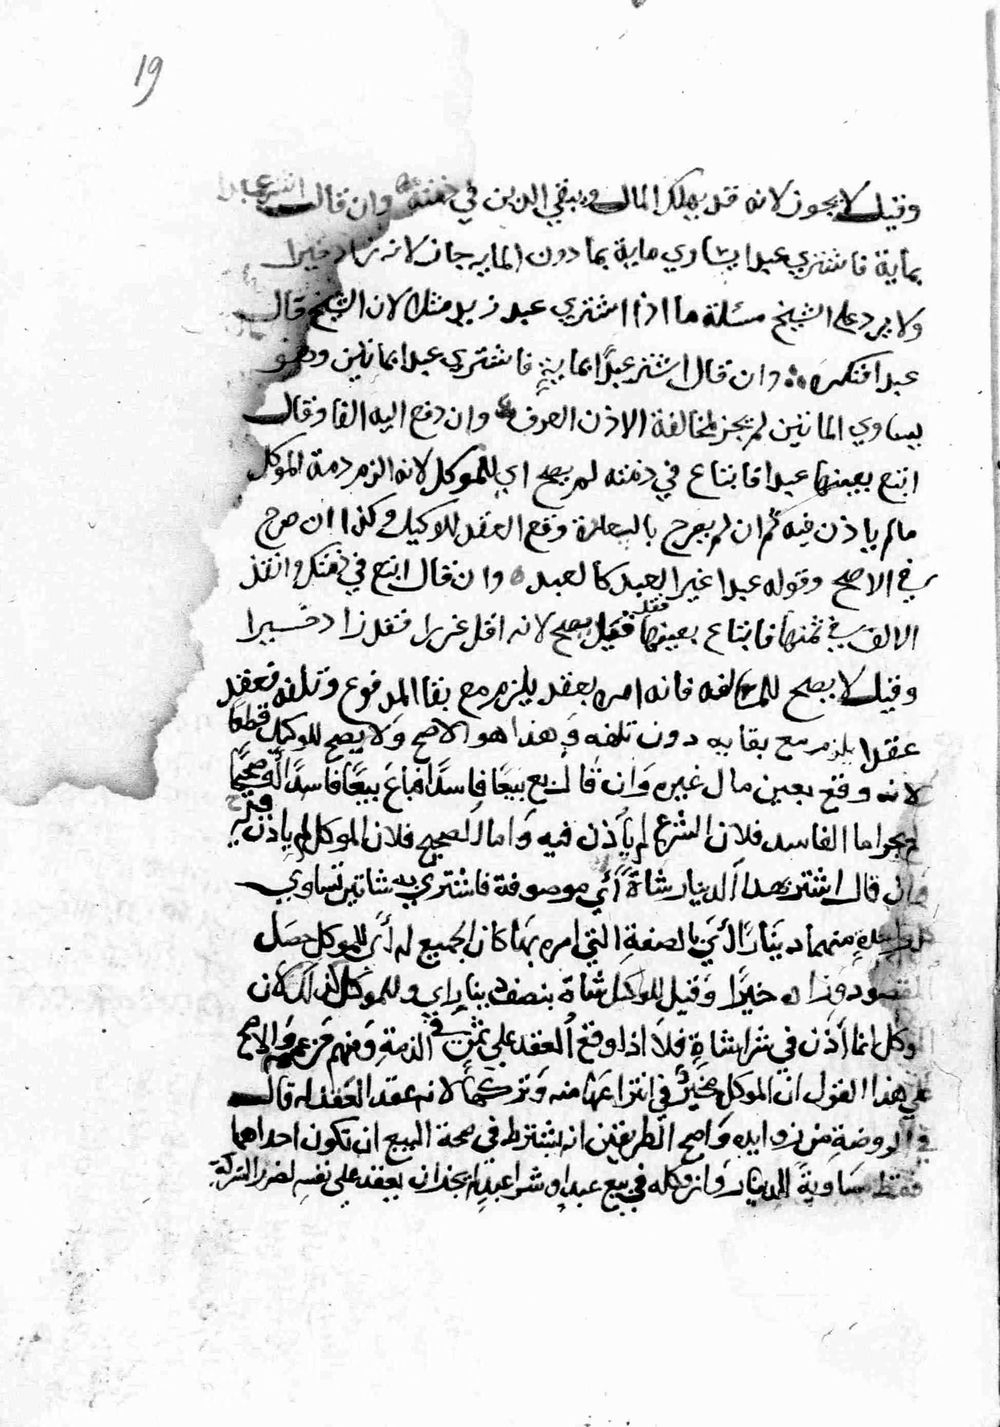 19
وقيل لا يجوز لانه قد يهلك المال ويبقي الدين في ذمته وان قال اشتر عبدا
بماية فاشتري عبدا يساوي ماية بما دون الماية جاز لانه زاد خيرا
ولا يرد علي الشيخ مسئلة ما اذا اشتري عبد زيد مثلا لان الشيخ قال
عبدا فنكره وان قال اشتر عبدًا بماية فاشتري عبدا بماتين وهو
يساوي الماتين لم يجز لمخالفة الاذن العرف وان دفع اليه الفا وقال
ابتع بعينها عبدا فابتاع في ذمته لم يصح اي للموكل لانه الزم ذمة الموكل
مالم ياذن فيه ثم ان لم يصرح بالسفارة وقع العقد للوكيل وكذا ان صرح
في الاصح وقوله عبدا غير العبد كالعبد وان قال ابتع في ذمتك وانقد
الالف في ثمنها فابتاع بعينها فقد قيل يصح لانه اقل غررا فقد زاد خيرا
وقيل لا يصح للمخالفه فانه امره بعقد يلزم مع بقا المدفوع وتلفه فعقد
عقدا يلزم مع بقايه دون تلفه وَهذا هو الاصح وَلا يصح للوكيل قطعا
لانه وقع بعين مال غيره وَان قال بع بيعًا فاسدًا فباعَ بيعًا فاسدًا او صحيحًا
لم يجز اما الفاسد فلان الشرع لم يأذن فيه وَاما الصحيح فلان الموكل لم ياذن فيه
وان قال اشتر بهذا الدينار شاةً أي موصوفة فاشتري به شاتين تساوي
كل واحدة منهما دينَارًا أي بالصفةِ التي امره بهَا كان الجميع له أي للموكل لحصَل
المقصود وزاده خيرًا وَقيل للوكيل شاة بنصف دينار اي وللموكل لان
الموكل انما أذن في شرا شاةٍ فلا اذا وقع العقد علي ثمن في الذمةِ وَمنهم من عمم وَالاصح
علي هذا القول ان الموكل مخيرٌ في انتزاعهَا منه وَتركهَا لانه عقد العَقد له قال
في الروضةِ من زوايده وَاصح الطريقين انه يشترط في صحة البيع ان تكون احداهما
فقط مسَاويةً الدينار وَان وكله في بيع عبدٍ او شرا عبدٍ لم يجز ان يعقد علي نفسِه لضرر الشركة